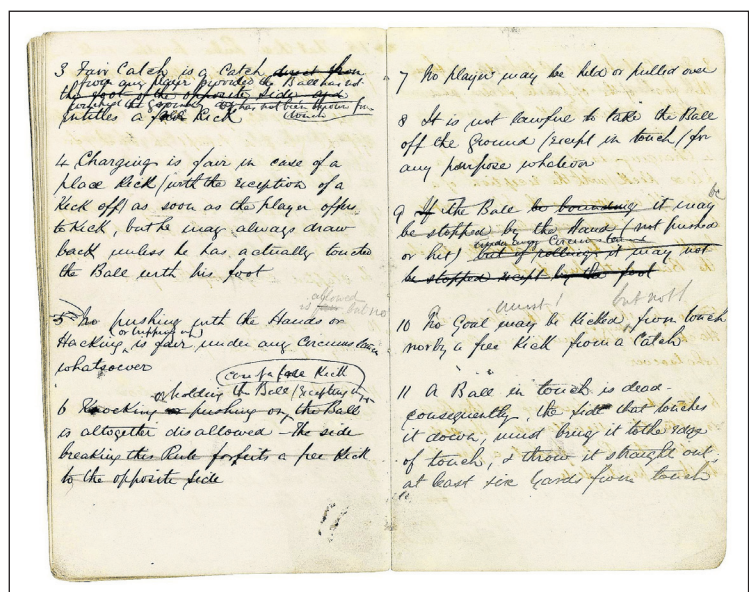 3 Fair Catch is a Catch direct from
from any player provided the Ball has not
the foot of the opposite side and
touched the ground or has not been thrown from
touch
entitles a free Kick
4 Charging is fair in case of a
place Kick (with the exception of a
Kick off) as soon as the player offers
to Kick, but he may always draw
back unless he has actually touched
the Ball with his foot
allowed
is fair but no
5 No pushing with the Hands or
(or tripping up)
Hacking is fair under any Circumstances
whatsoever
or holding the Ball (excepting
6 Knocking or pushing on the Ball
is altogether disallowed The side
breaking this Rule forfeits a free Kick
to the opposite side
7 No player may be held or pulled over
8 It is not lawful to take the Ball
off the Ground (except in touch) for
any purpose whatever
be
9 If the Ball be bounding it may
be stopped by the Hand (not pushed
under any Circumstance
or hit) but if rolling it may not
be stopped except by the foot
but not
10 No Goal may be Kicked from touch
nor by a free Kick from a Catch
11 A Ball in touch is dead
consequently the side that touches
it down, must bring it to the edge
of touch, & throw it straight out
at least six yards from touch